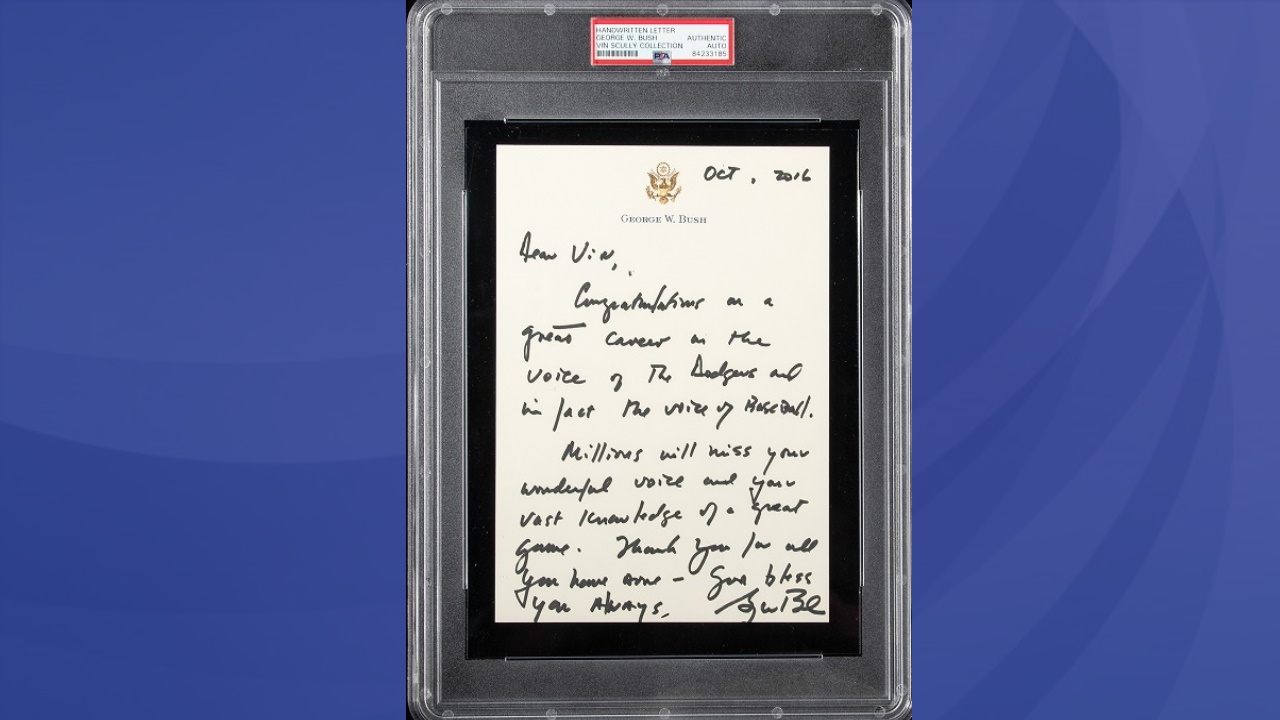 HANDWRITTEN LETTER
GEORGE W. BUSH AUTHENTIC
VIN SCULLY COLLECTION AUTO
PSA 84233185
Oct, 2016
GEORGE W. BUSH
Dear Vin,
Congratulations on a
great career as the
voice of the Dodgers and
in fact the voice of Baseball.
Millions will miss your
wonderful voice and your
vast knowledge of a great
game. Thank you for all
you have done - God bless
you always.